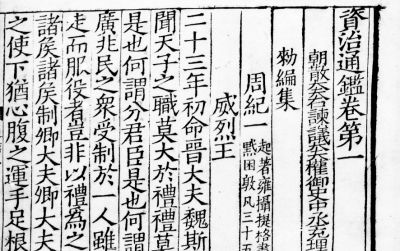 資治通鑑卷第一
朝散大夫右諫議大夫權御史中丞充理
勑編集
周紀一
起著雍攝提格盡
黓困敦凡三十五
威烈王
二十三年初命晉大夫魏斯
聞天子之職莫大於禮禮莫
是也何謂分君臣是也何謂
廣兆民之衆受制於一人雖
走而服役者豈非以禮為之
諸侯諸侯制卿大夫卿大夫
之使下猶心腹之運手足根